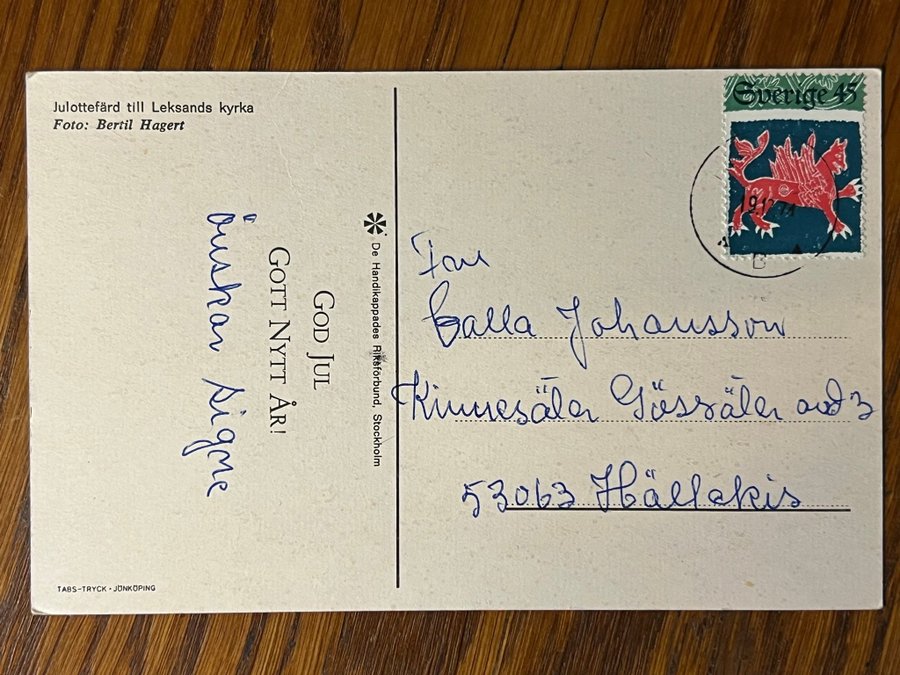 Julottefärd till Leksands kyrka
Foto: Bertil Hagert
Sverige 45
De Handikappades Riksförbund, Stockholm
GOD JUL
GOTT NYTT ÅR!
önskar Signe
Calla Johansson
Kinnesäter Gössäter
53063 Hällekis
TABS-TRYCK · JÖNKÖPING